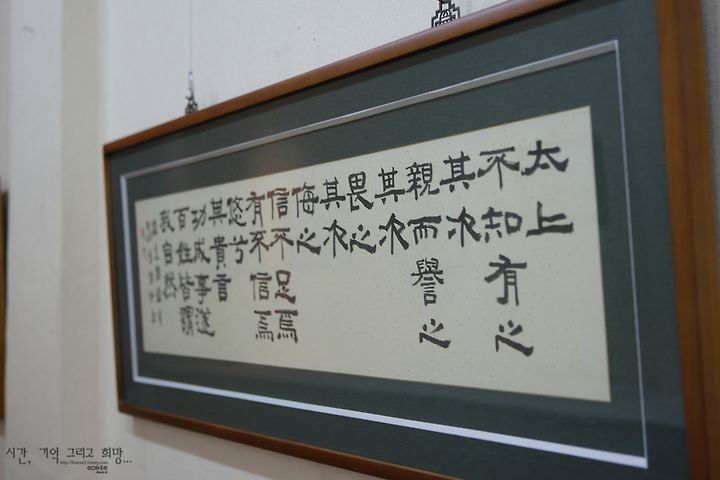 太上
不知有之
其次
親而譽之
其次
畏之
其次
侮之
信不足焉
有不信焉
悠兮
其貴言
功成事遂
百姓皆謂
我自然
시간, 기억 그리고 희망...